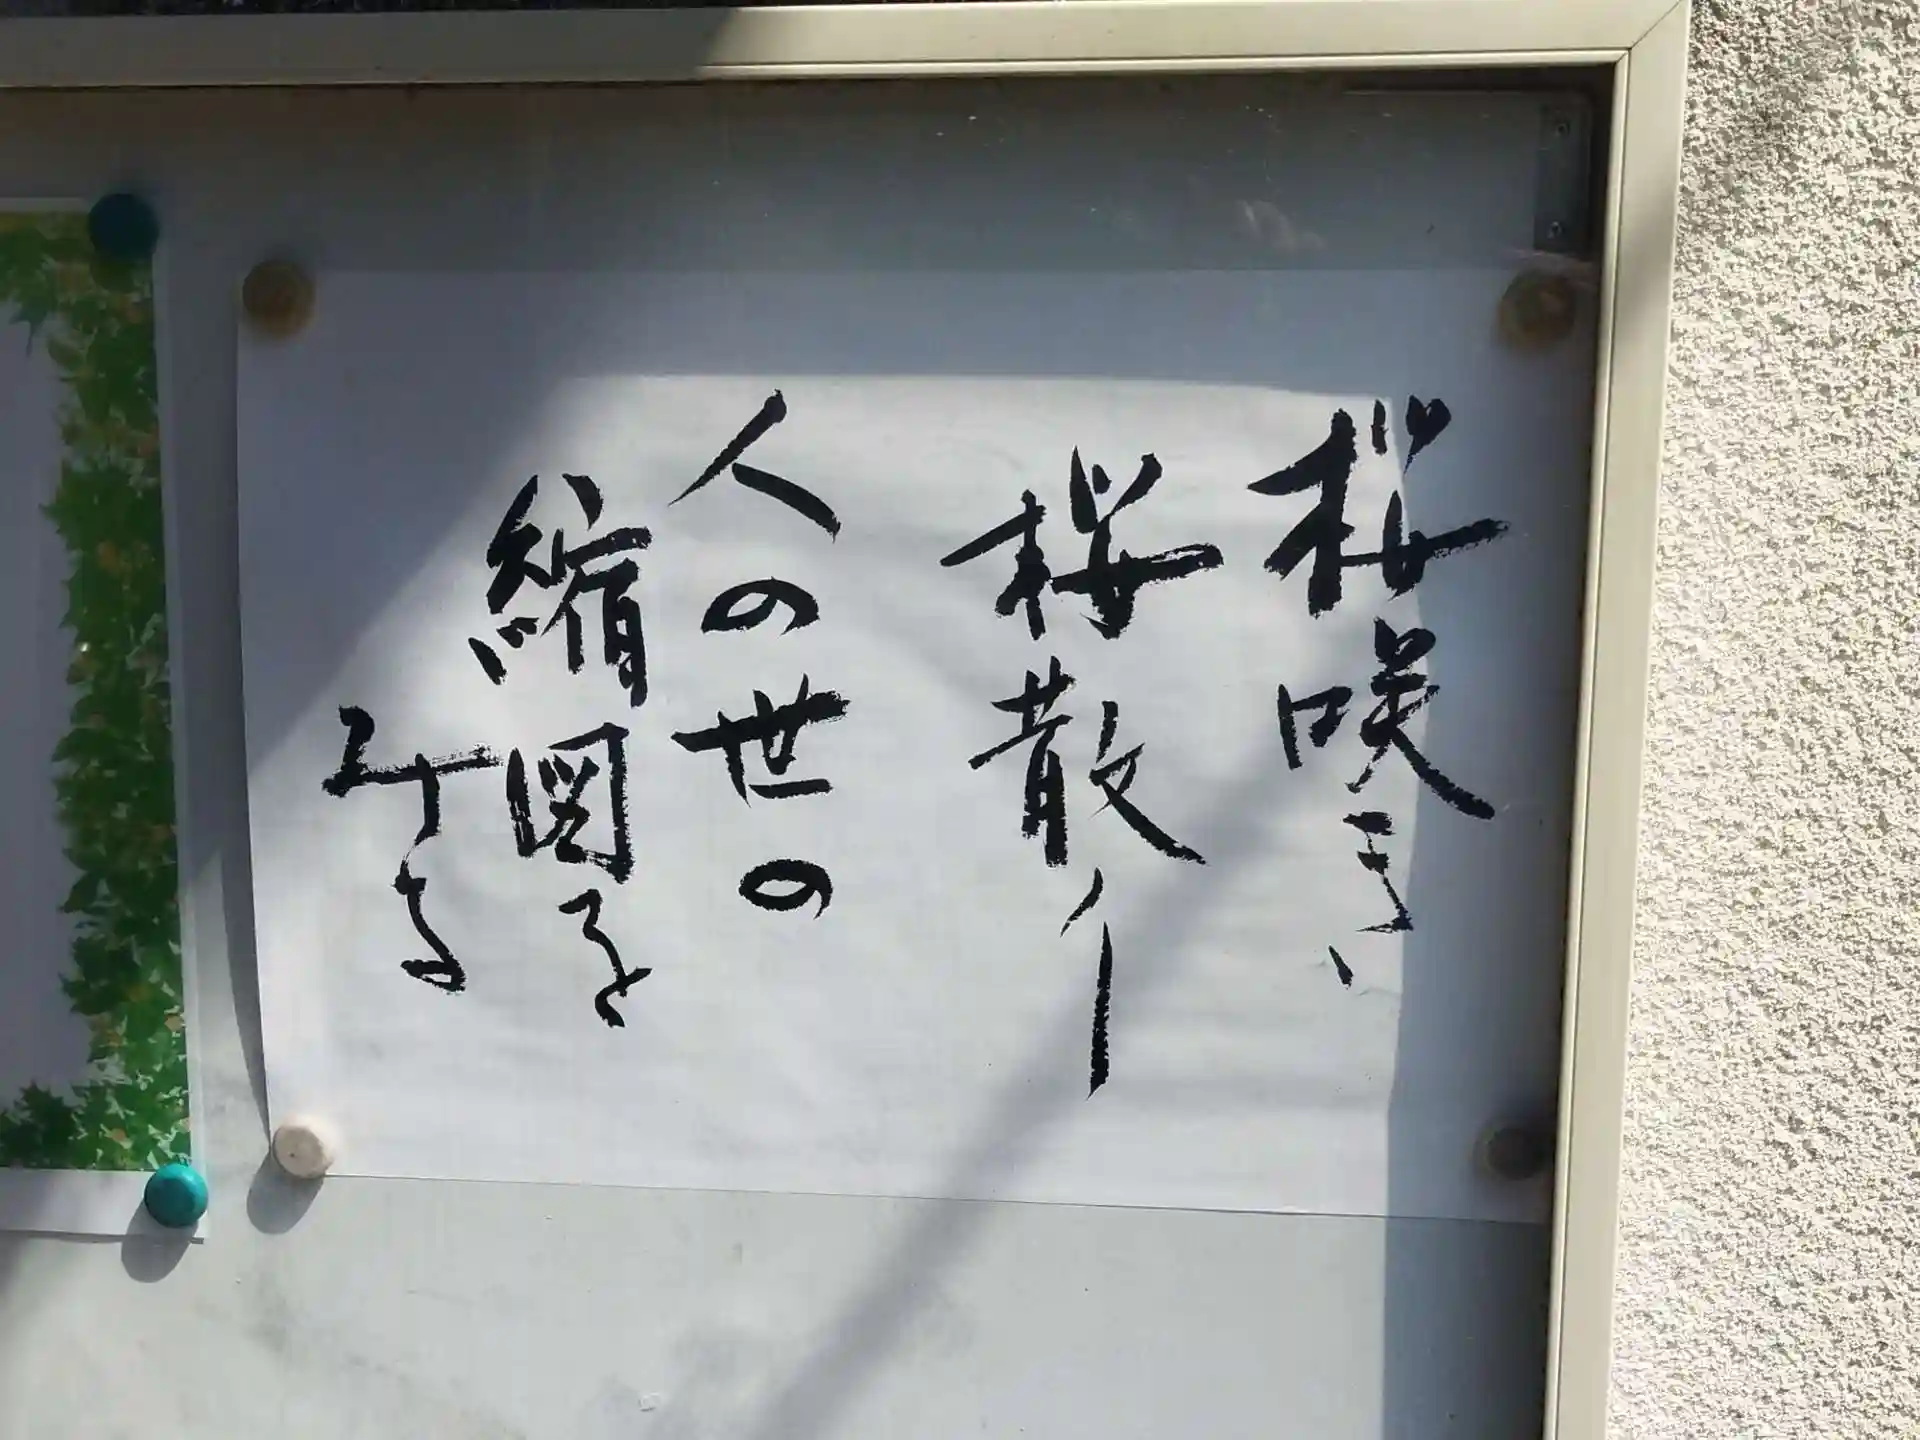 桜咲き、
桜散り
人の世の
縮図を
みる